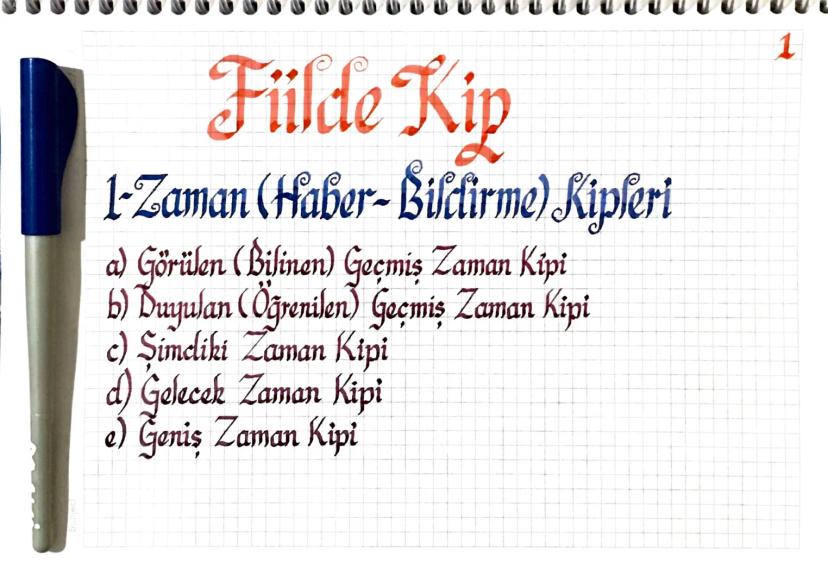 1
Fiilde Kip
1-Zaman (Haber-Bildirme) Kipleri
a) Görülen (Bilinen) Geçmiş Zaman Kipi
b) Duyulan (Öğrenilen) Geçmiş Zaman Kipi
c) Şimdiki Zaman Kipi
d) Gelecek Zaman Kipi
e) Geniş Zaman Kipi